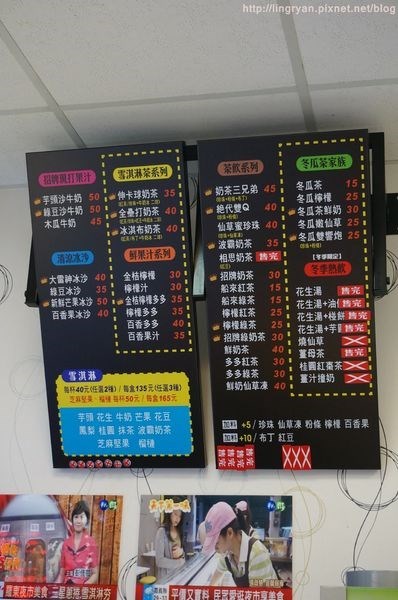 http://lingryan.pixnet.net/blog
招牌現打果汁
芋頭沙牛奶 50
綠豆沙牛奶 50
木瓜牛奶 45
清涼冰沙
大雷神冰沙 40
綠豆冰沙 35
新鮮芒果冰沙 50
百香果冰沙 40
雪淇淋茶系列
伸卡球奶茶 35
全壘打奶茶 40
冰淇布奶茶 40
鮮果汁系列
金桔檸檬 30
檸檬汁 30
金桔檸檬多多 35
檸檬多多 40
百香多多 40
百香果汁 35
雪淇淋
每杯40元(任選2種) / 每盒135元(任選3種)
芝麻堅果、榴槤 每杯50元 / 每盒165元
芋頭 花生 牛奶 芒果 花豆
鳳梨 桂圓 抹茶 火龍果
芝麻堅果 榴槤
茶飲系列
奶茶三兄弟 45
絕代雙Q 40
仙草蜜珍珠 40
波霸奶茶 35
相思奶茶 售完
招牌奶茶 30
船來紅茶 15
船來綠茶 15
檸檬紅茶 25
檸檬綠茶 25
招牌綠奶茶 30
鮮奶茶 40
多多紅茶 30
多多綠茶 30
鮮奶仙草凍 40
冬瓜茶家族
冬瓜茶 15
冬瓜檸檬 25
冬瓜茶鮮奶 30
冬瓜嫩仙草 25
冬瓜雙響炮 25
【冬季限定】
冬季熱飲
花生湯 售完
花生湯+油 售完
花生湯+椪餅 售完
花生湯+芋 售完
燒仙草
薑母茶 售完
桂圓紅棗茶
薑汁撞奶
加料 +5 / 珍珠 仙草凍 粉條 檸檬 百香果
加料 +10 / 布丁 紅豆
售完 售完 售完 XXX
羅東夜市美食 三星蔥捲雪淇淋夯
天下第一味